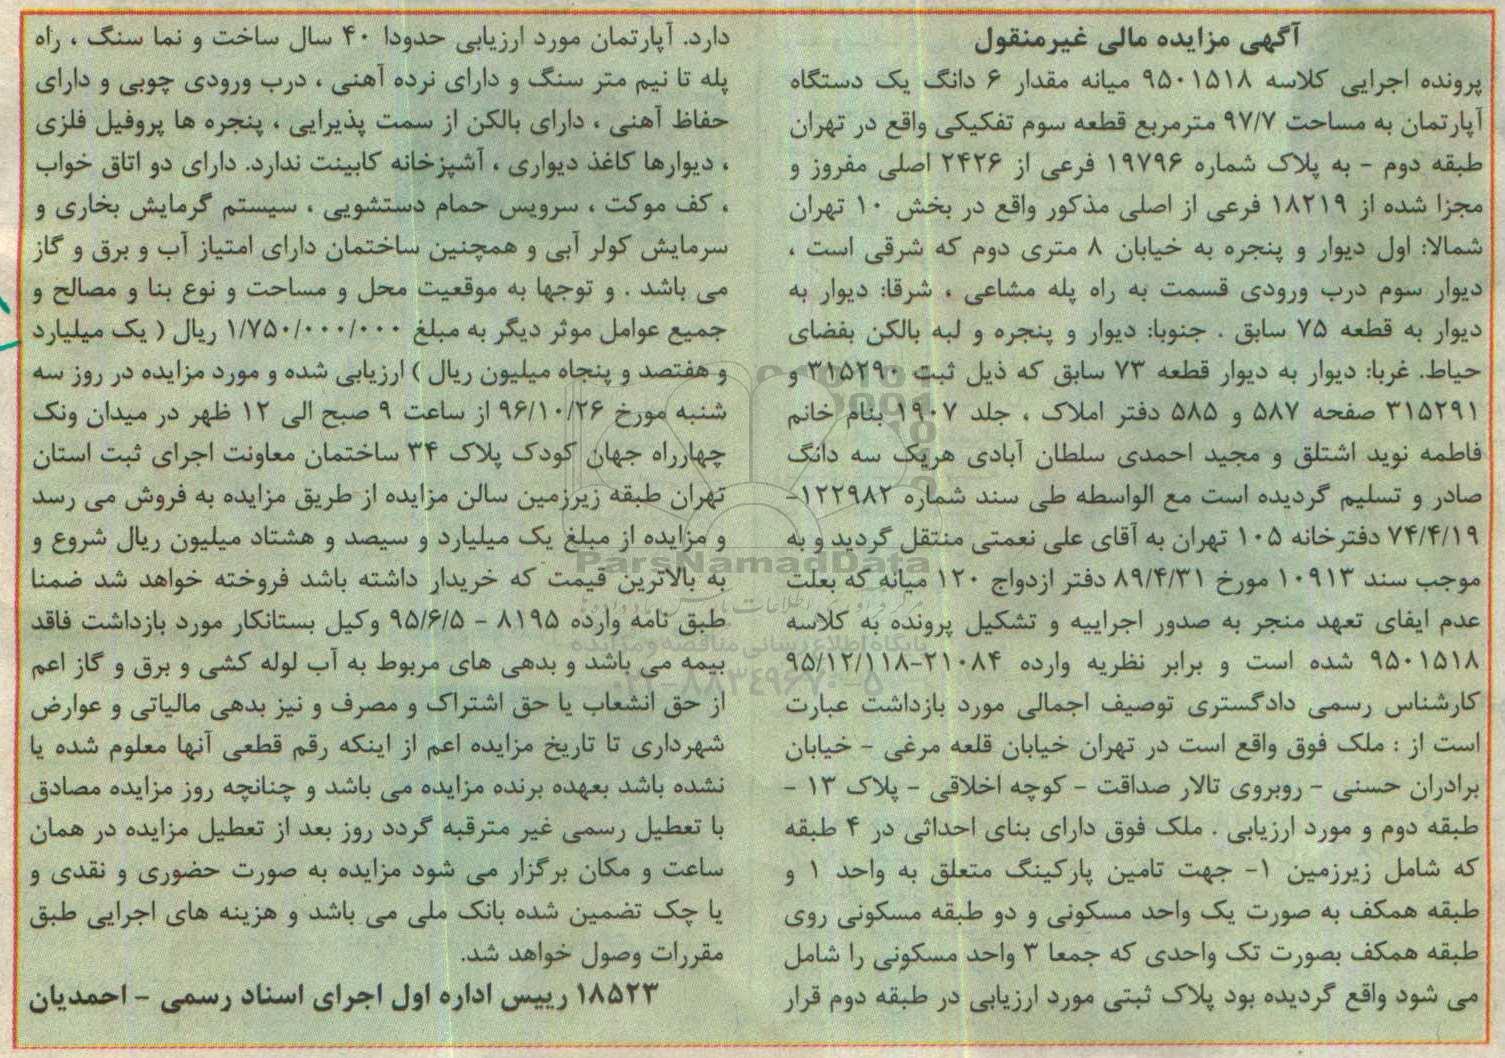 آگهی مزایده مالی غیرمنقول
پرونده اجرایی کلاسه ۹۵۰۱۵۱۸ میانه مقدار ۶ دانگ یک دستگاه
آپارتمان به مساحت ۹۷/۷ مترمربع قطعه سوم تفکیکی واقع در تهران
طبقه دوم - به پلاک شماره ۱۹۷۹۶ فرعی از ۲۴۲۶ اصلی مفروز و
مجزا شده از ۱۸۲۱۹ فرعی از اصلی مذکور واقع در بخش ۱۰ تهران
شمالا: اول دیوار و پنجره به خیابان ۸ متری دوم که شرقی است ،
دیوار سوم درب ورودی قسمت به راه پله مشاعی ، شرقا: دیوار به
دیوار به قطعه ۷۵ سابق . جنوبا: دیوار و پنجره و لبه بالکن بفضای
حیاط. غربا: دیوار به دیوار قطعه ۷۳ سابق که ذیل ثبت ۳۱۵۲۹۰ و
۳۱۵۲۹۱ صفحه ۵۸۷ و ۵۸۵ دفتر املاک ، جلد ۱۹۰۷ بنام خانم
فاطمه نوید اشتلق و مجید احمدی سلطان آبادی هریک سه دانگ
صادر و تسلیم گردیده است مع الواسطه طی سند شماره ۱۲۲۹۸۲-
۷۴/۴/۱۹ دفترخانه ۱۰۵ تهران به آقای علی نعمتی منتقل گردید و به
موجب سند ۱۰۹۱۳ مورخ ۸۹/۴/۳۱ دفتر ازدواج ۱۲۰ میانه که بعلت
عدم ایفای تعهد منجر به صدور اجراییه و تشکیل پرونده به کلاسه
۹۵۰۱۵۱۸ شده است و برابر نظریه وارده ۲۱۰۸۴-۹۵/۱۲/۱۱۸
کارشناس رسمی دادگستری توصیف اجمالی مورد بازداشت عبارت
است از : ملک فوق واقع است در تهران خیابان قلعه مرغی - خیابان
برادران حسنی - روبروی تالار صداقت - کوچه اخلاقی - پلاک ۱۳ -
طبقه دوم و مورد ارزیابی . ملک فوق دارای بنای احداثی در ۴ طبقه
که شامل زیرزمین ۱- جهت تامین پارکینگ متعلق به واحد ۱ و
طبقه همکف به صورت یک واحد مسکونی و دو طبقه مسکونی روی
طبقه همکف بصورت تک واحدی که جمعا ۳ واحد مسکونی را شامل
می شود واقع گردیده بود پلاک ثبتی مورد ارزیابی در طبقه دوم قرار
دارد. آپارتمان مورد ارزیابی حدودا ۴۰ سال ساخت و نما سنگ ، راه
پله تا نیم متر سنگ و دارای نرده آهنی ، درب ورودی چوبی و دارای
حفاظ آهنی ، دارای بالکن از سمت پذیرایی ، پنجره ها پروفیل فلزی
، دیوارها کاغذ دیواری ، آشپزخانه کابینت ندارد. دارای دو اتاق خواب
، کف موکت ، سرویس حمام دستشویی ، سیستم گرمایش بخاری و
سرمایش کولر آبی و همچنین ساختمان دارای امتیاز آب و برق و گاز
می باشد . و توجها به موقعیت محل و مساحت و نوع بنا و مصالح و
جمیع عوامل موثر دیگر به مبلغ ۱/۷۵۰/۰۰۰/۰۰۰ ریال ( یک میلیارد
و هفتصد و پنجاه میلیون ریال ) ارزیابی شده و مورد مزایده در روز سه
شنبه مورخ ۹۶/۱۰/۲۶ از ساعت ۹ صبح الی ۱۲ ظهر در میدان ونک
چهارراه جهان کودک پلاک ۳۴ ساختمان معاونت اجرای ثبت استان
تهران طبقه زیرزمین سالن مزایده از طریق مزایده به فروش می رسد
و مزایده از مبلغ یک میلیارد و سیصد و هشتاد میلیون ریال شروع و
به بالاترین قیمت که خریدار داشته باشد فروخته خواهد شد ضمنا
طبق نامه وارده ۸۱۹۵ - ۹۵/۶/۵ وکیل بستانکار مورد بازداشت فاقد
بیمه می باشد و بدهی های مربوط به آب لوله کشی و برق و گاز اعم
از حق انشعاب یا حق اشتراک و مصرف و نیز بدهی مالیاتی و عوارض
شهرداری تا تاریخ مزایده اعم از اینکه رقم قطعی آنها معلوم شده یا
نشده باشد بعهده برنده مزایده می باشد و چنانچه روز مزایده مصادق
با تعطیل رسمی غیر مترقبه گردد روز بعد از تعطیل مزایده در همان
ساعت و مکان برگزار می شود مزایده به صورت حضوری و نقدی و
یا چک تضمین شده بانک ملی می باشد و هزینه های اجرایی طبق
مقررات وصول خواهد شد.
۱۸۵۲۳ رییس اداره اول اجرای اسناد رسمی - احمدیان
ParsNamadData
پایگاه اطلاع رسانی مناقصه و مزایده
۰۲۱-۸۸۳۴۹۶۷۰-۵